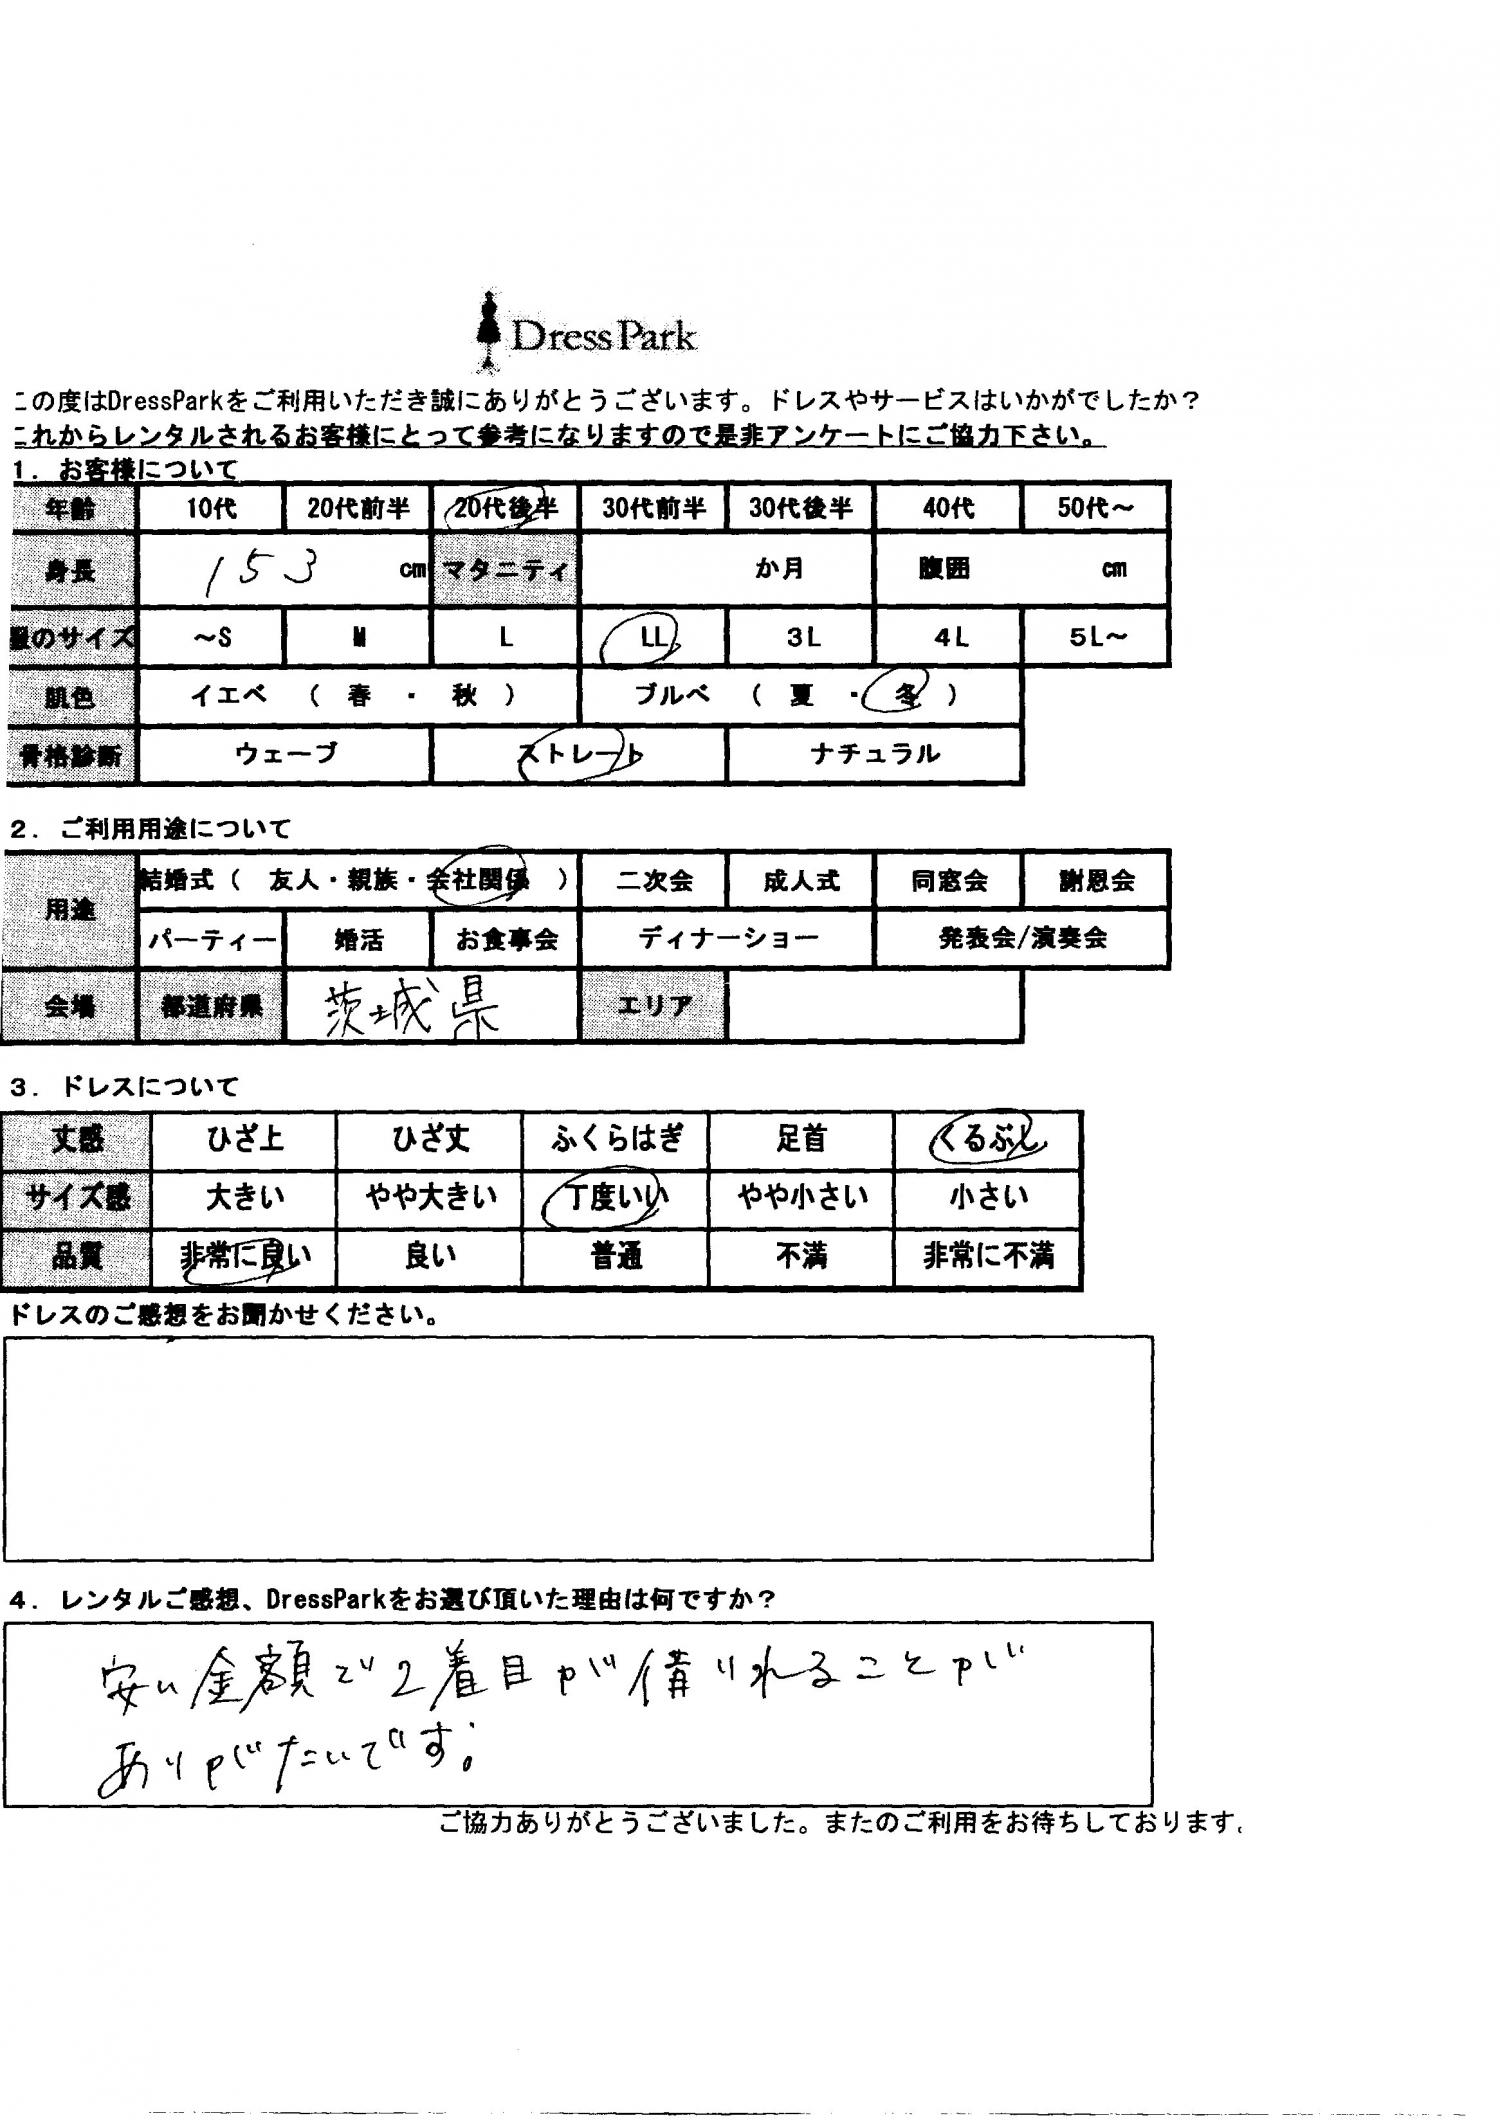 DressPark
この度はDressParkをご利用いただき誠にありがとうございます。ドレスやサービスはいかがでしたか？
これからレンタルされるお客様にとって参考になりますので是非アンケートにご協力下さい。
1. お客様について
年齢 10代 20代前半 20代後半 30代前半 30代後半 40代 50代～
身長 153 cm マタニティ か月 腹囲 cm
服のサイズ ～S M L LL 3L 4L 5L～
肌色 イエベ （ 春 ・ 秋 ） ブルベ （ 夏 ・ 冬 ）
骨格診断 ウェーブ ストレート ナチュラル
2. ご利用用途について
用途 結婚式（ 友人・親族・会社関係 ） 二次会 成人式 同窓会 謝恩会
パーティー 婚活 お食事会 ディナーショー 発表会/演奏会
会場 都道府県 茨城県 エリア
3. ドレスについて
丈感 ひざ上 ひざ丈 ふくらはぎ 足首 くるぶし
サイズ感 大きい やや大きい 丁度いい やや小さい 小さい
品質 非常に良い 良い 普通 不満 非常に不満
ドレスのご感想をお聞かせください。
4. レンタルご感想、DressParkをお選び頂いた理由は何ですか？
安い金額で2着目が借りれることが
ありがたいです。
ご協力ありがとうございました。またのご利用をお待ちしております。